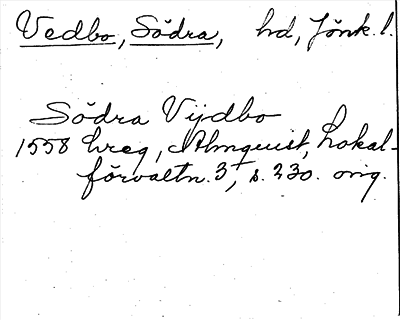 Vedbo, Södra, hd, Jönk. l.
Södra Vijdbo
1558 Ereg, Almquist, Lokal-
förvaltn. 3, s. 230. orig.